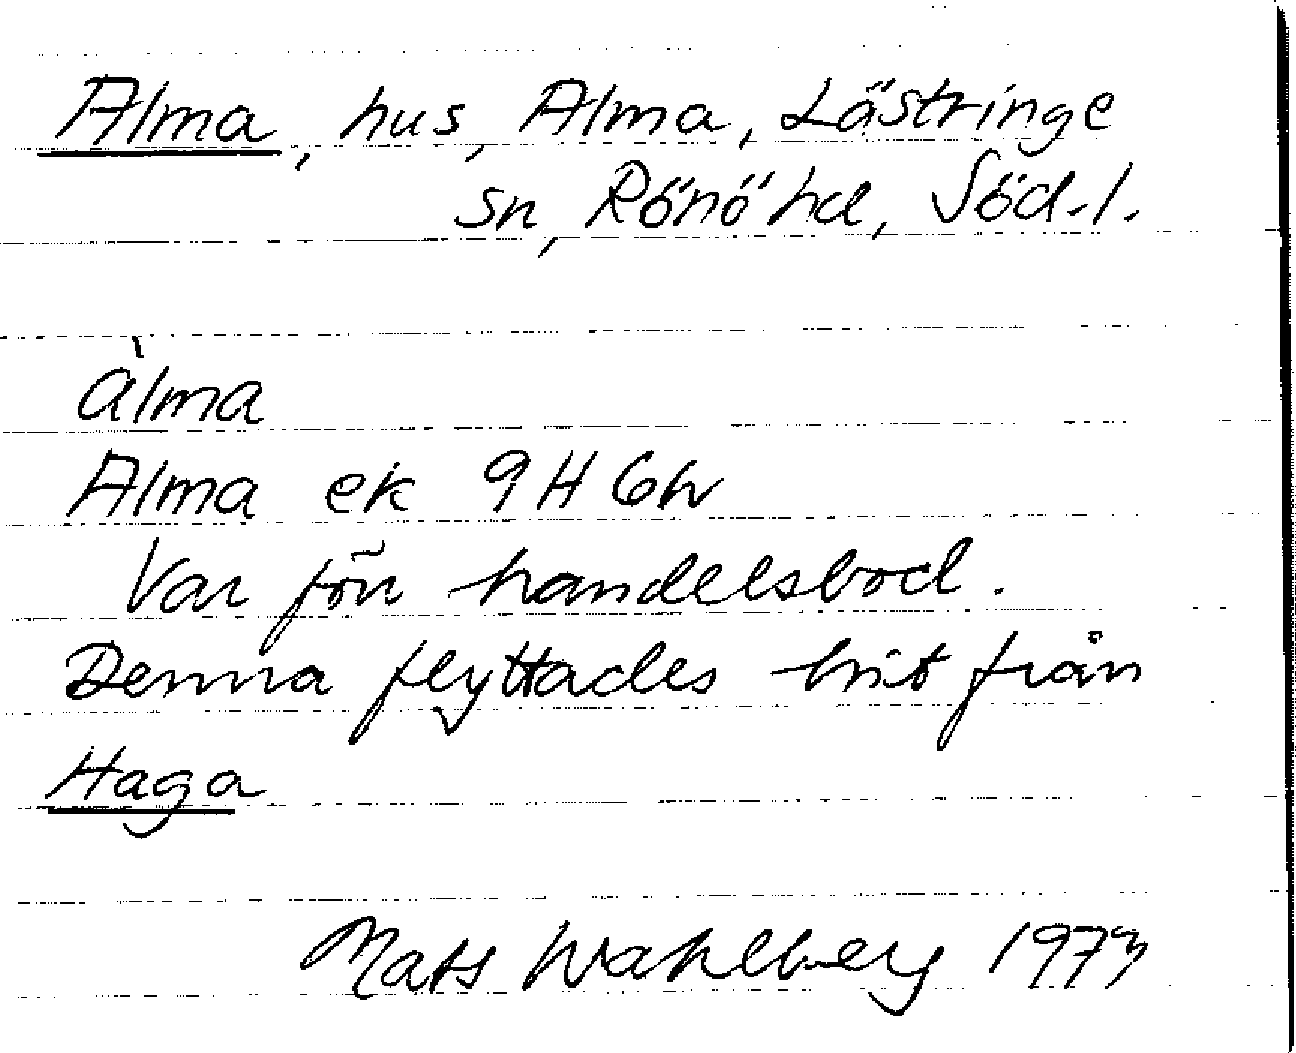 Alma, hus, Alma, Lästringe
sn, Rönö hd, Söd.l.
àlma
Alma ek 9H6h
Var förr handelsbod.
Denna flyttades hit från
Haga
Mats Wahlberg 1973